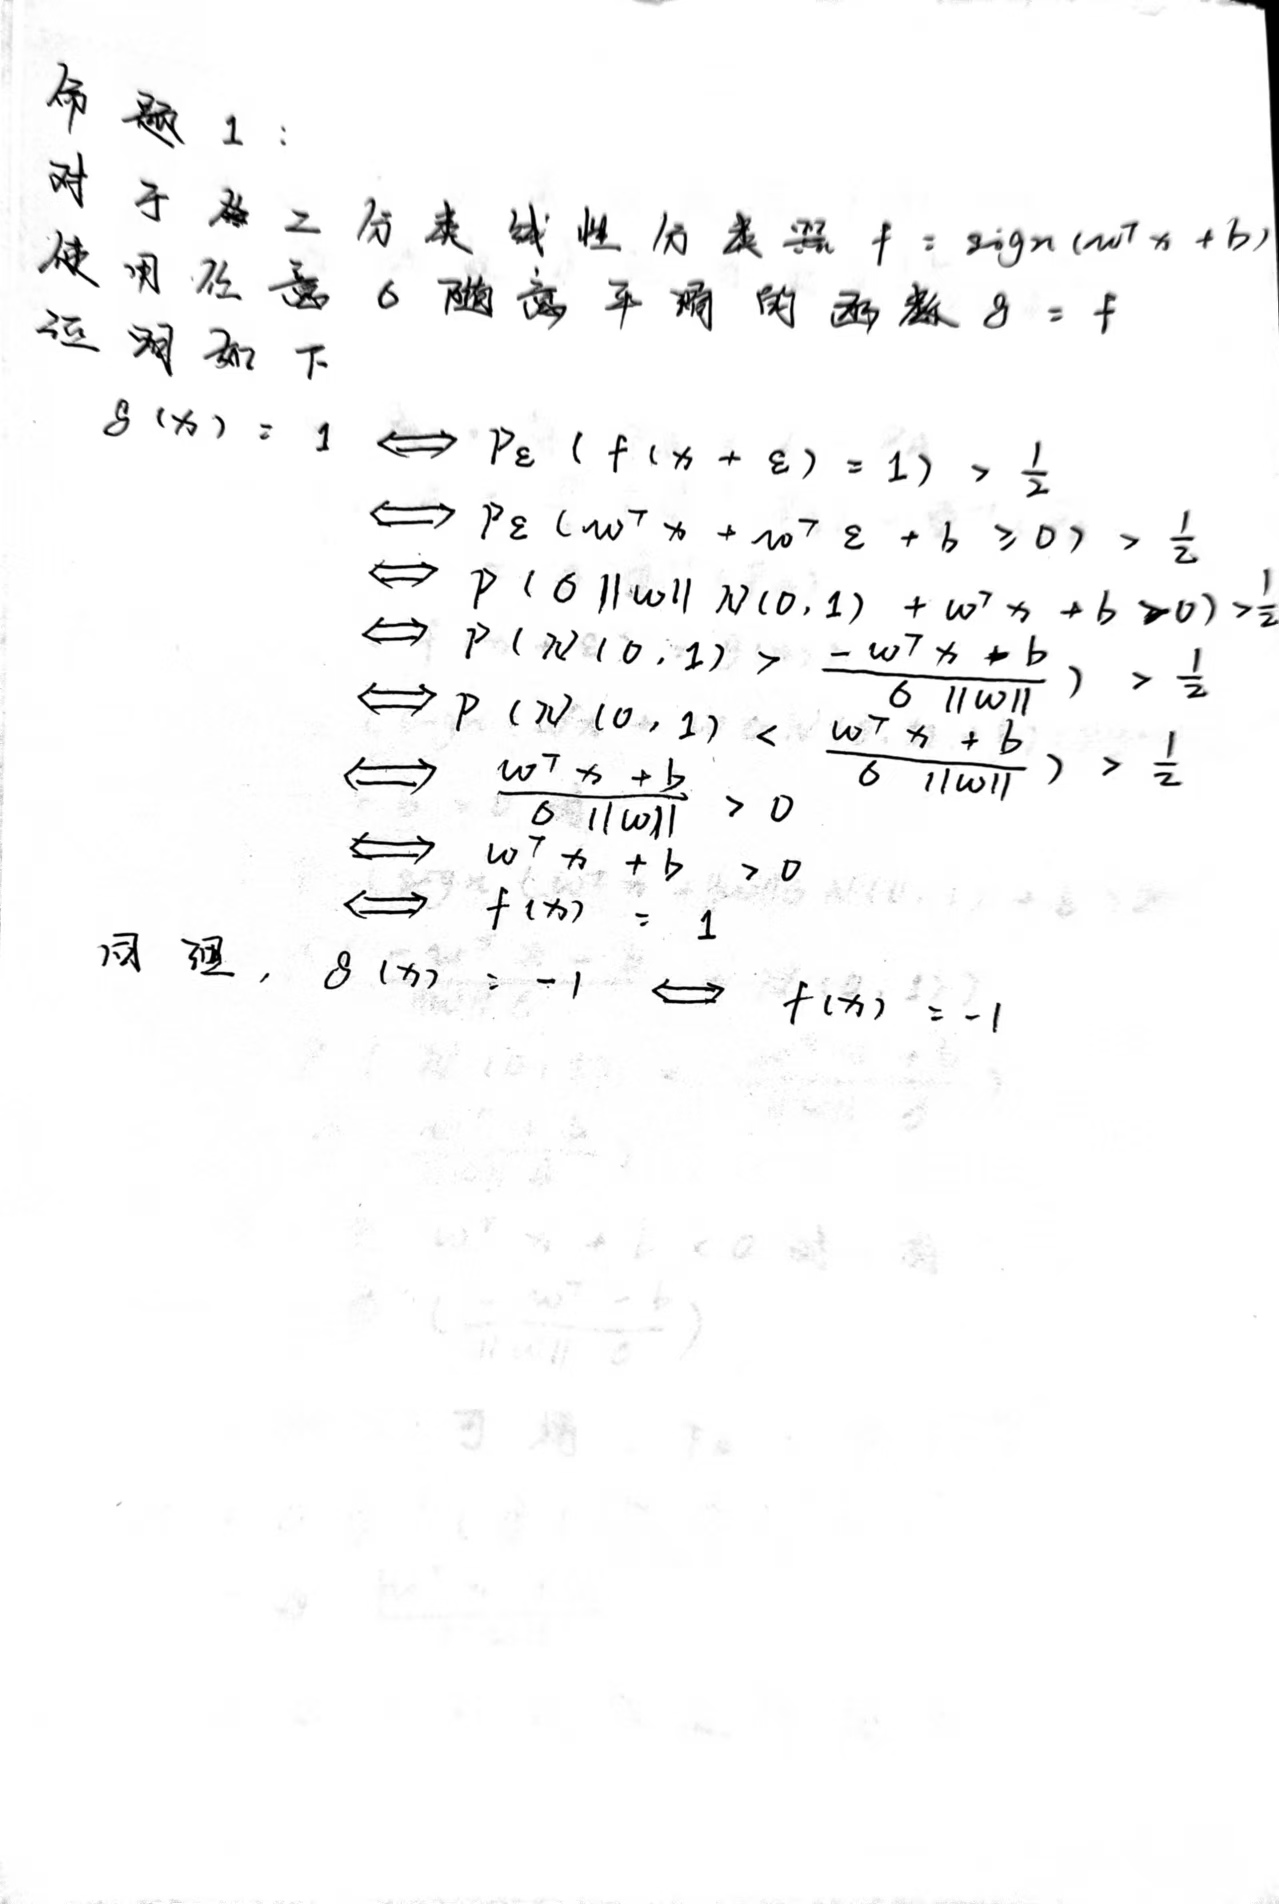 命题1:
对于二分类线性分类器 f = sign(wᵀx + b)
使用任意 σ 随意平滑的函数 g = f
证明如下
g(x) = 1 ⟺ P_ε(f(x + ε) = 1) > 1/2
⟺ P_ε(wᵀx + wᵀε + b ≥ 0) > 1/2
⟺ P(σ||w|| N(0,1) + wᵀx + b > 0) > 1/2
⟺ P(N(0,1) > (-wᵀx + b)/(σ ||w||)) > 1/2
⟺ P(N(0,1) < (wᵀx + b)/(σ ||w||)) > 1/2
⟺ (wᵀx + b)/(σ ||w||) > 0
⟺ wᵀx + b > 0
⟺ f(x) = 1
同理, g(x) = -1 ⟺ f(x) = -1